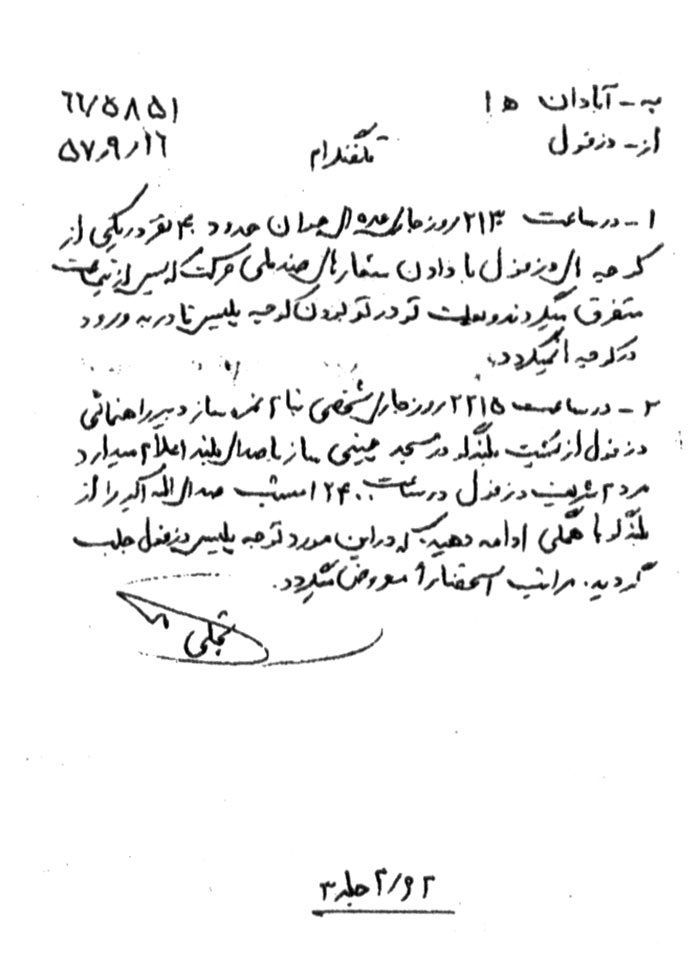 به - آبادان ه ۱ ۶۶/۵۸۵۱
از - دزفول تلفنگرام ۵۷٫۹٫۱۶
۱- در ساعت ۲۱۳۰ روز جاری حدود ۴۰ نفر در یکی از
کوچه های دزفول با دادن شعارهای ضد ملی حرکت که پس از نیمساعت
متفرق میگردند و بعلت تو در تو بودن کوچه پلیس قادر به ورود
در کوچه ها نمیگردد.
۲- در ساعت ۲۲۱۵ روز جاری شخصی بنام ساز دبیر راهنمائی
دزفول از پشت بلندگو در مسجد چینی ساز با صدای بلند اعلام میدارد
مردم شریف دزفول در ساعت ۲۴۰۰ امشب صدای الله اکبر را از
بلندگو با همگی ادامه دهید که در این مورد توجه پلیس دزفول جلب
گردید. مراتب استحضاراً معروض میگردد.
تجلی
۲/۹۲ جلد ۳